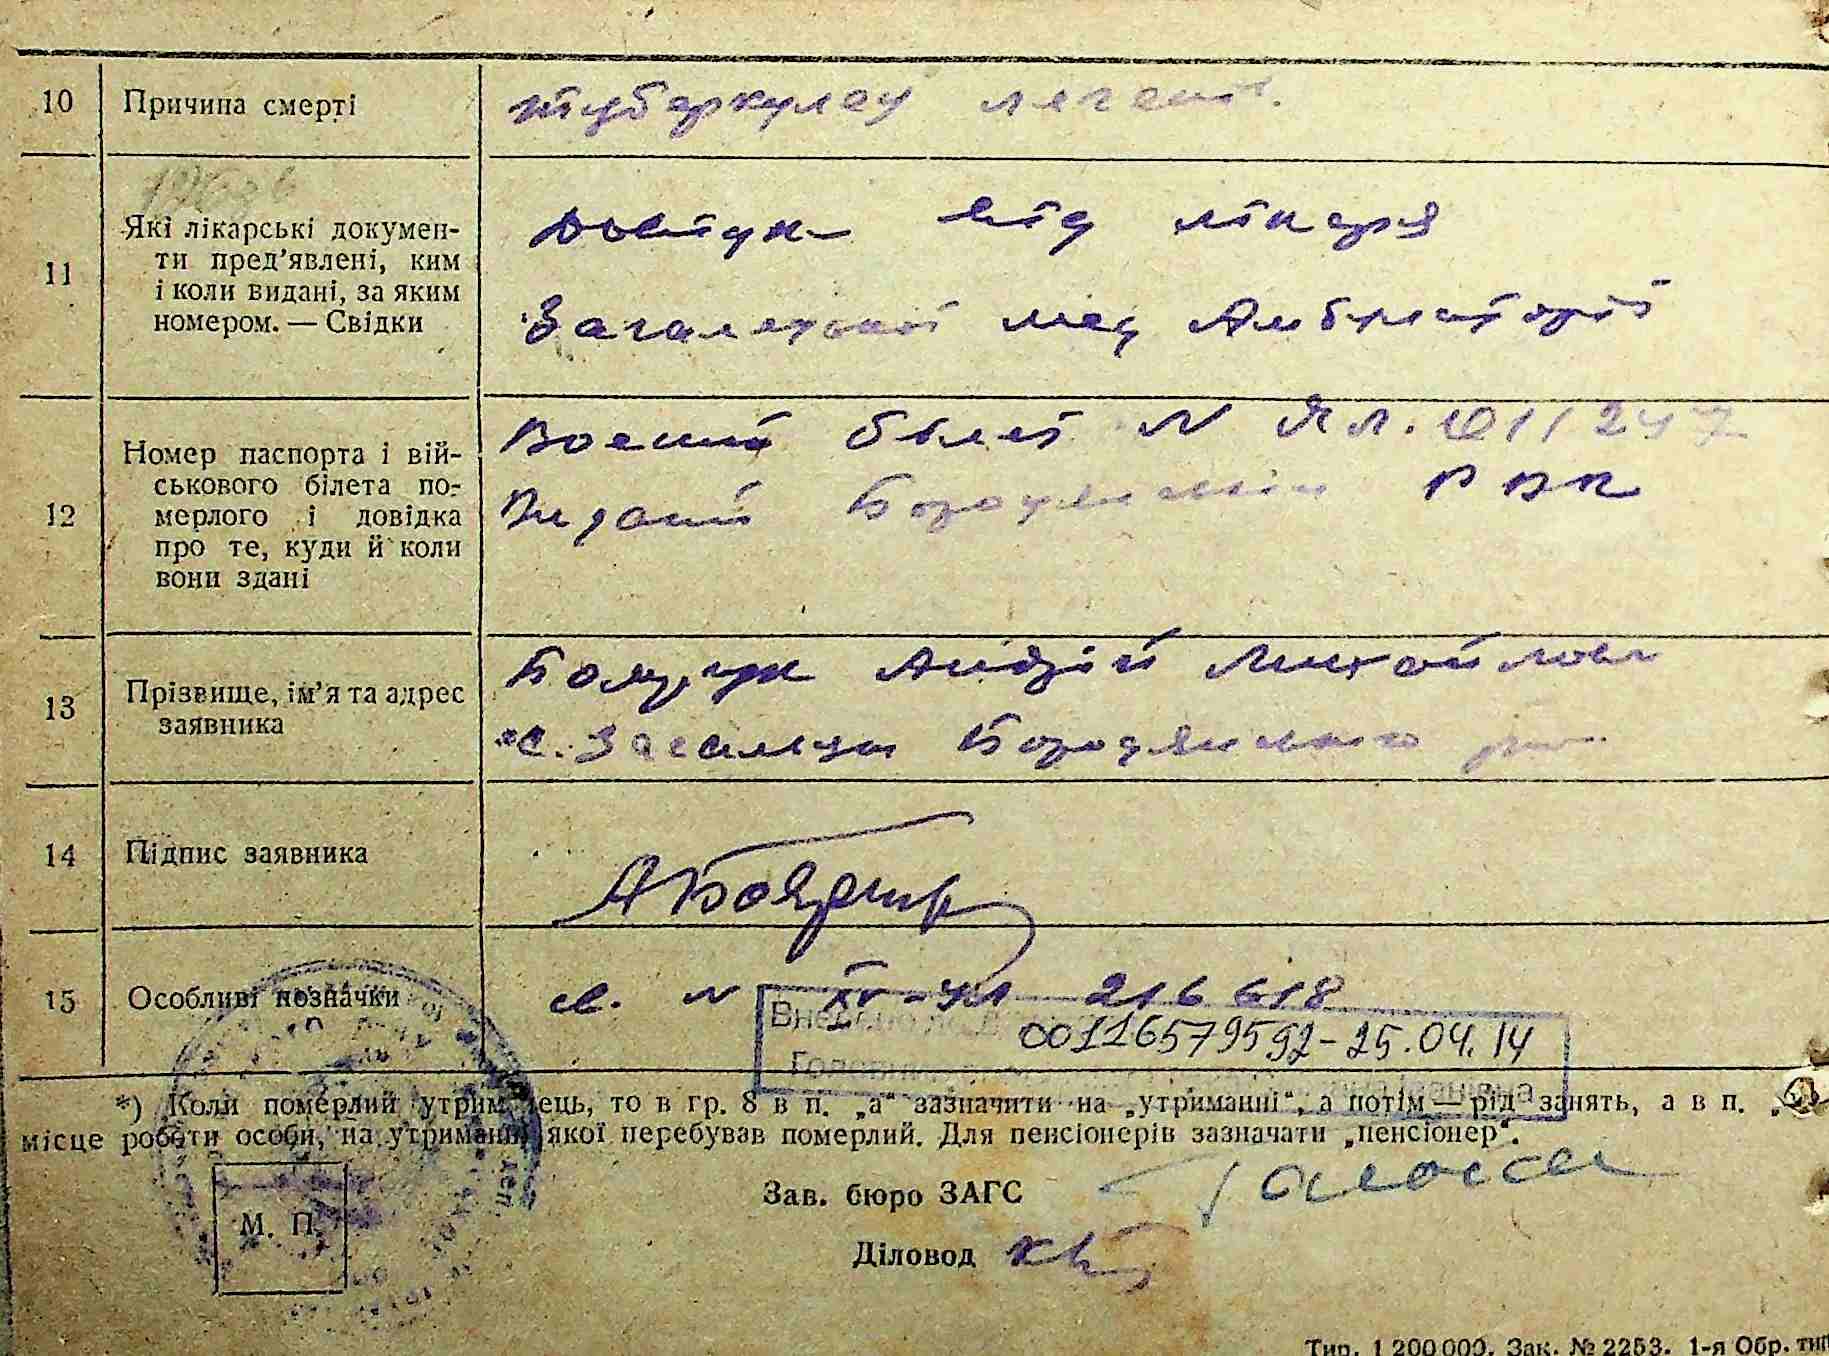 10 Причина смерті туберкулез легені.
11 Які лікарські докумен-
ти пред'явлені, ким
і коли видані, за яким
номером. — Свідки
Довідка від лікаря
мед Амбулаторії
12 Номер паспорта і вій-
ськового білета по-
мерлого і довідка
про те, куди й коли
вони здані
Воений білет N ЯЛ. 011247
Виданий Бородянским РВК
13 Прізвище, ім'я та адрес
заявника
Андрій Михайлов
с. Бородянського
14 Підпис заявника
15 Особливі позначки
с. N IV-УЛ 216618
00116579592-25.04.14
*) Коли померлий утриманець, то в гр. 8 в п. „а" зазначити на „утриманні", а потім — рід занять, а в п. „б"
місце роботи особи, на утриманні якої перебував померлий. Для пенсіонерів зазначати „пенсіонер".
Зав. бюро ЗАГС
М. П.
Діловод
Тир. 1 200 000. Зак. № 2253. 1-я Обр. тип